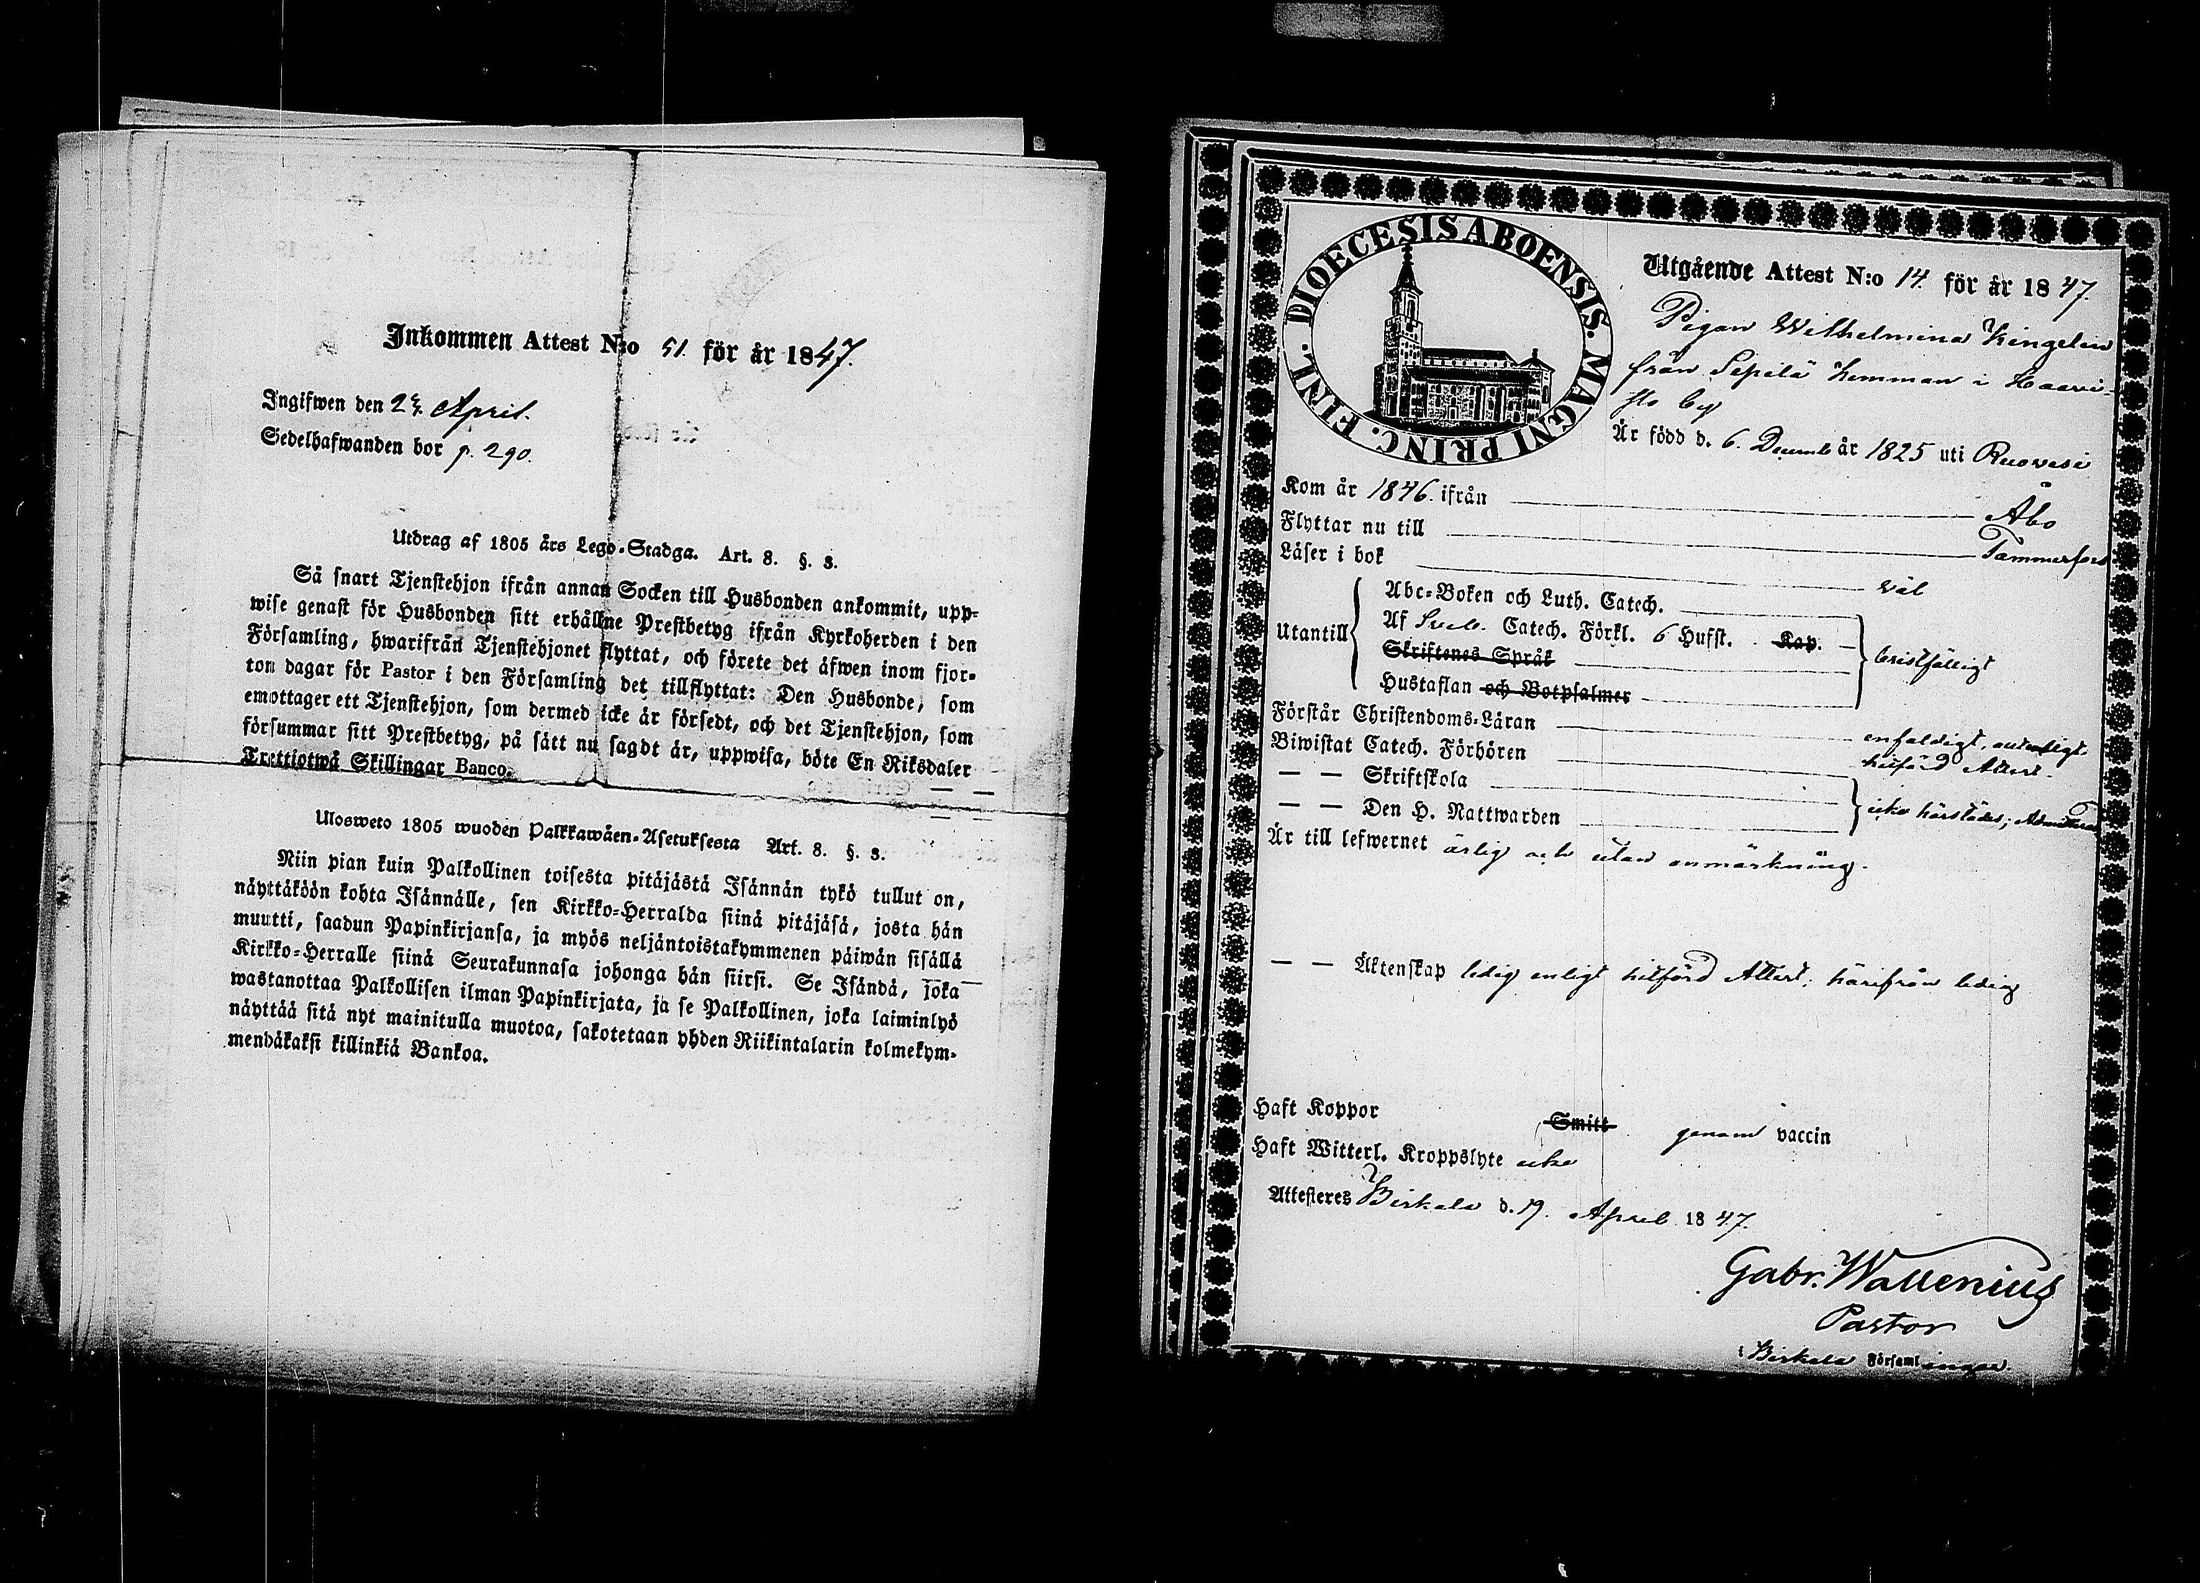 Inkommen Attest N:o 51. för år 1847.
Ingifwen den 27. April.
Sedelhafwanden bor p. 290.
Utdrag af 1805 års Lego-Stadga. Art. 8. §. 3.
Så snart Tjenstehjon ifrån annan Socken till Husbonden ankommit, upp-
wise genast för Husbonden sitt erhållne Prestbetyg ifrån Kyrkoherden i den
Församling, hwarifrån Tjenstehjonet flyttat, och förete det äfwen inom fjor-
ton dagar för Pastor i den Församling det tillflyttat: Den Husbonde, som
emottager ett Tjenstehjon, som dermed icke är försedt, och det Tjenstehjon, som
försummar sitt Prestbetyg, på sätt nu sagdt är, uppwisa, böte En Riksdaler
Trettiotwå Skillingar Banco.
Ulosweto 1805 wuoden Palkkawäen-Asetuksesta Art. 8. §. 3.
Niin pian kuin Palkollinen toisesta pitäjästä Isännän tykö tullut on,
näyttäköön kohta Isännälle, sen Kirkko-Herralda siinä pitäjäsä, josta hän
muutti, saadun Papinkirjansa, ja myös neljäntoistakymmenen päiwän sisällä
Kirkko-Herralle siinä Seurakunnasa johonga hän siirsi. Se Isändä, joka
wastanottaa Palkollisen ilman Papinkirjata, ja se Palkollinen, joka laiminlyö
näyttää sitä nyt mainitulla muotoa, sakotetaan yhden Riikintalarin kolmekym-
mendäkaksi killinkiä Bankoa.
DIOECESIS ABOENSIS. MAGNI PRINC. FINL.
Utgående Attest N:o 14. för år 1847.
Pigan Wilhelmina Kingelin
från Sepilä hemman i Haavi-
sto by
Är född d. 6. Decemb år 1825 uti Ruovesi
Kom år 1846. ifrån Åbo
Flyttar nu till Tammerfors
Läser i bok väl
Utantill
Abc-Boken och Luth. Catech.
Af Sveb. Catech. Förkl. 6 Hufst. Kap.
Skriftenes Språk
Hustaflan och Botpsalmer
bristfälligt
Förstår Christendoms-Läran enfaldigt, enligt
Biwistat Catech. Förhören hitförd Attest.
— — Skriftskola
— — Den H. Nattwarden
icke härstädes;
Är till lefwernet ärlig och utan anmärkning.
— — Äktenskap ledig enligt hitförd Attest, härifrån ledig
Haft Koppor Smitt genom vaccin
Haft Witterl. Kroppslyte icke
Attesteres Birkala d. 19. April 1847.
Gabr. Wallenius
Pastor
i Birkala Församlingar.